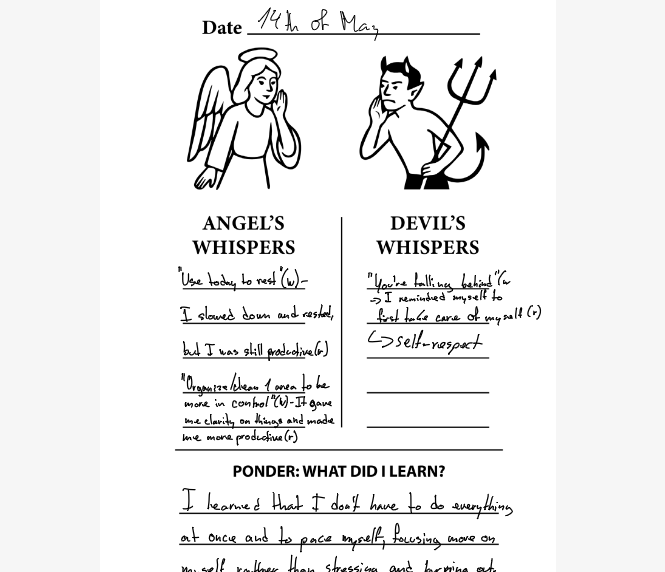 Date 14th of May
ANGEL'S
WHISPERS
"Use today to rest"(w)-
I slowed down and rested,
but I was still productive(r)
"Organize/clean 1 area to be
more in control"(w)-It gave
me clarity on things and made
me more productive(r)
DEVIL'S
WHISPERS
"You're falling behind"(w
-> I reminded myself to
first take care of myself (r)
↳ self-respect
PONDER: WHAT DID I LEARN?
I learned that I don't have to do everything
at once and to pace myself, focusing more on
myself rather than stressing and burning out